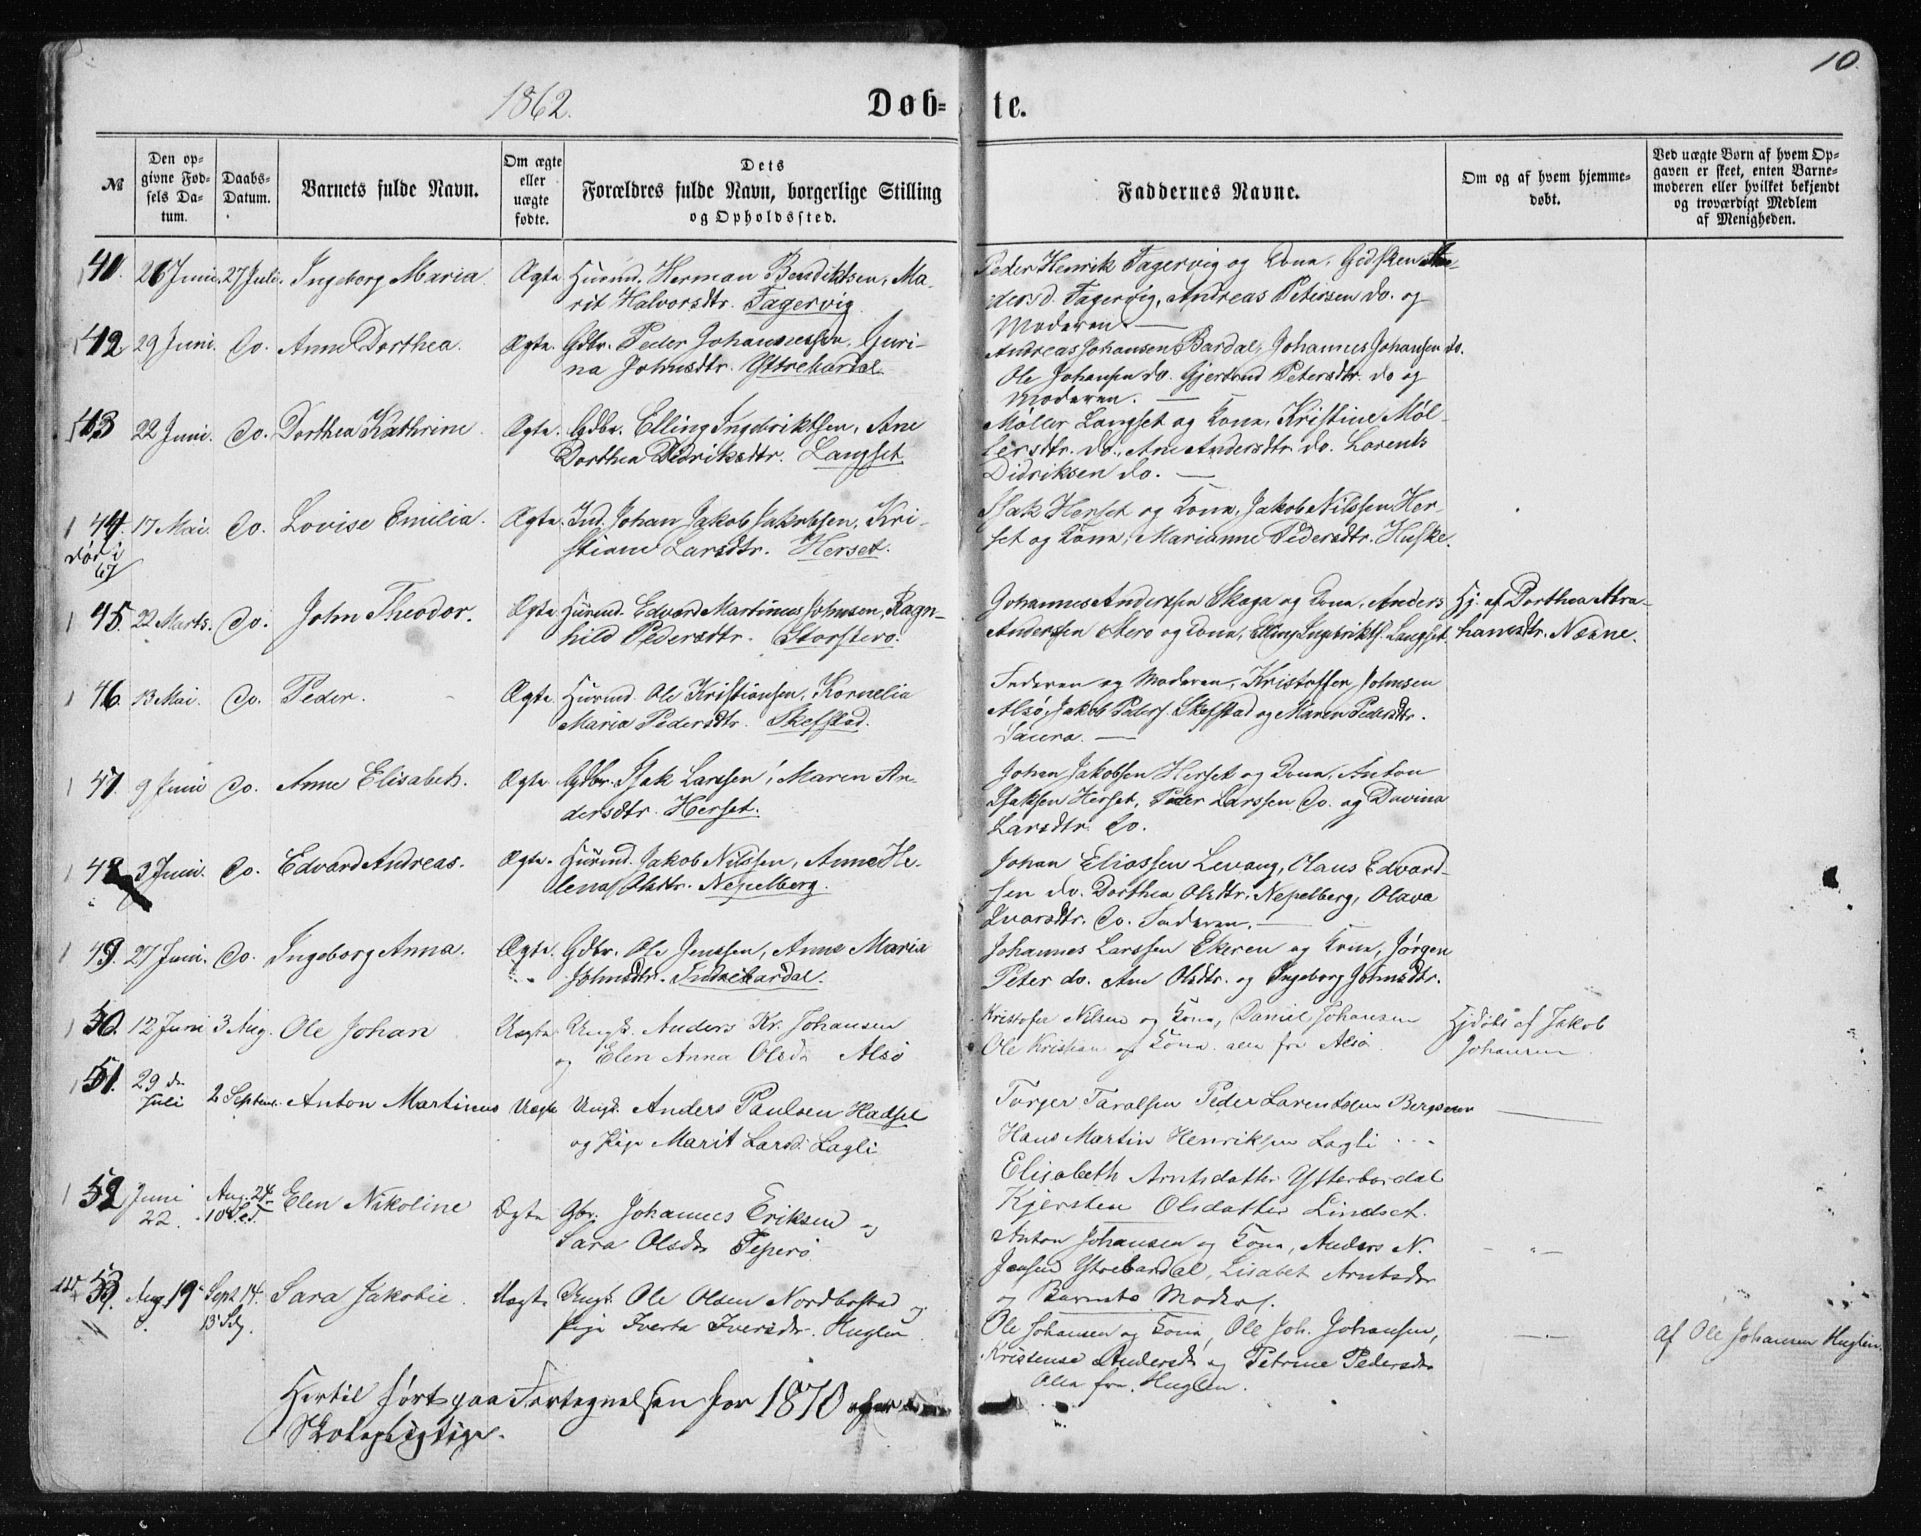 10.
1862.
Døb-te.
№
Den op-
givne Fød-
sels Da-
tum.
Daabs-
Datum.
Barnets fulde Navn.
Om ægte
eller
uægte
fødte.
Dets
Forældres fulde Navn, borgerlige Stilling
og Opholdssted.
Faddernes Navne.
Om og af hvem hjemme-
døbt.
Ved uægte Børn af hvem Op-
gaven er skeet, enten Barne-
moderen eller hvilket bekjendt
og troværdigt Medlem
af Menigheden.
41. 26 Juni. 27 Juli. Ingeborg Maria. Ægte Huusmd. Herman Bendiktsen, Ma-
rit Halvorsdtr. Fagervig
Peder Henrik Fagervig og Kona,
Fagervig, Andreas Petersen do. og
Moderen. —
42 29 Juni. Do. Anne Dorthea. Ægte. Gdbr. Peder Johannessen, Guri-
na Johnsdtr. Yttrebardal.
Andreas Johansen Bardal, Johannes Johansen do.
Ole Johansen do. Gjertrud Petersdtr. do og
Moderen. —
43 22 Juni. Do. Dorthea Kathrine. Ægte. Gdbr. Elling Ingebriktsen, Ane
Dorthea Didriksdtr. Langset.
Møller Langset og Kona, Kristine Møl-
lersdtr. do., Ane Andersdtr. do. Lorents
Didriksen do. —
44. 17 Mai. Do. Lovise Emilia. Ægte. Ind. Johan Jakob Jakobsen, Kri-
stiane Larsdtr. Herset.
død i
67
Isak Herset og Kona, Jakob Nilssen Her-
set og Kona, Marianne Pedersdtr. Huske.
45. 22 Marts. Do. John Theodor. Ægte Huusmd. Edvard Martinus Johnsen, Ragn-
hild Pedersdtr. Storsterø.
Johannes Anderssen Skaga og Kona, Anders
Anderssen og Kona, Elling Ingebrikts. Langset.
Hj. af Dorthea Abra-
hamsdtr. Næsne.
46. 13 Mai. Do. Peder. Ægte Huusmd. Ole Kristiansen, Kornelia
Maria Pedersdtr. Skefstad.
Faderen og Moderen, Kristoffer Johnsen
Alsø, Jakob Peders. Skefstad og Maren Pedersdtr.
Saura. —
47. 9 Juni Do. Anne Elisabeth. Ægte Gdbr. Isak Larssen, Maren An-
dersdtr. Herset.
Johan Jakobsen Herset og Kona, Anton
Isaksen Herset, Peder Larssen Do. og Davina
Larsdtr. Do.
48 3 Juni. Do. Edvard Andreas. Ægte. Huusmd. Jakob Nilssen, Anne He-
lena Olsdtr. Nepelberg.
Johan Eliassen Levang, Olaus Edvard-
sen do. Dorthea Olsdtr. Nepelberg, Olava
Ivarsdtr. Do. Faderen. —
49. 27 Juni. Do. Ingeborg Anna. Ægte. Gdbr. Ole Jenssen, Anne Maria
Johnsdtr. Indrebardal.
Johannes Larssen Ekeren og Kona, Jørgen
Peter do. Ane Olsdtr. og Ingeborg Johnsdtr.
50. 12 Juni 3 Aug. Ole Johan Uægte Ungk. Anders Kr. Johansen
og Elen Anna Olsdr Alsø
Kristofer Nilsen og Kona, Daniel Johansen
Ole Kristian og Kona. alla fra Alsø.
Hjdøbt af Jakob
Johansen.
51. 29 de
Juli 2 Septem. Anton Martinus Uægte Ungk. Anders Paulsen Hadset
og Pige Marit Larsd. Lagli
Torger Taralsen Peder Larentsen Bergsmo —
Hans Martin Henriksen Lagli
Elisabeth Arntsdatter Ytterbardal
Kjersten Olsdatter Lindset.
52 Juni
22. Aug. 24
10 Set. Elen Nikoline Ægte Gbr. Johannes Eriksen og
Sara Olsdr
Anton Johansen og Kona, Anders N.
Jensen Ytrebardal, Lisabet Arntsdr
og Barnets Moder.
53. Aug 19 Sept 14.
Sara Jakobie. Uægte Ungk. Ole Olsen Nordbostad og
pige Iverta Iversdr. Huglen
Ole Johansen og Kona, Ole Joh. Johansen,
Kristense Andersdr og Petrine Pedersdr
Alla fra Huglen.
Af Ole Johansen Huglen.
Hertil ført paa Fortegnelsen for 1870 over
Skolepligtige.